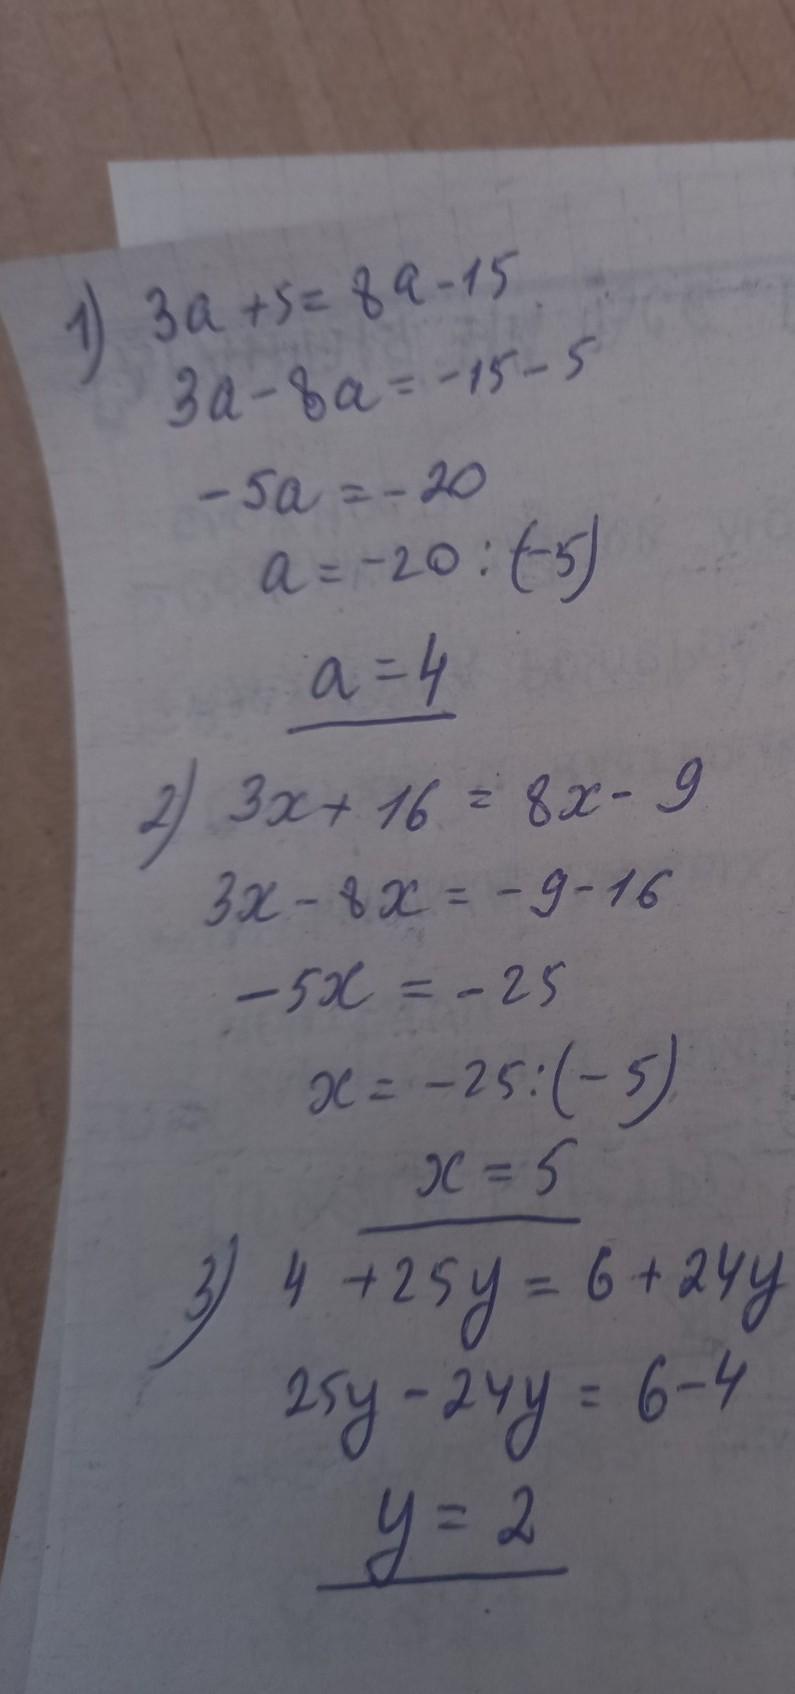 1) 3a+5=8a-15
3a-8a=-15-5
-5a=-20
a=-20:(-5)
a=4
2) 3x+16=8x-9
3x-8x=-9-16
-5x=-25
x=-25:(-5)
x=5
3) 4+25y=6+24y
25y-24y=6-4
y=2